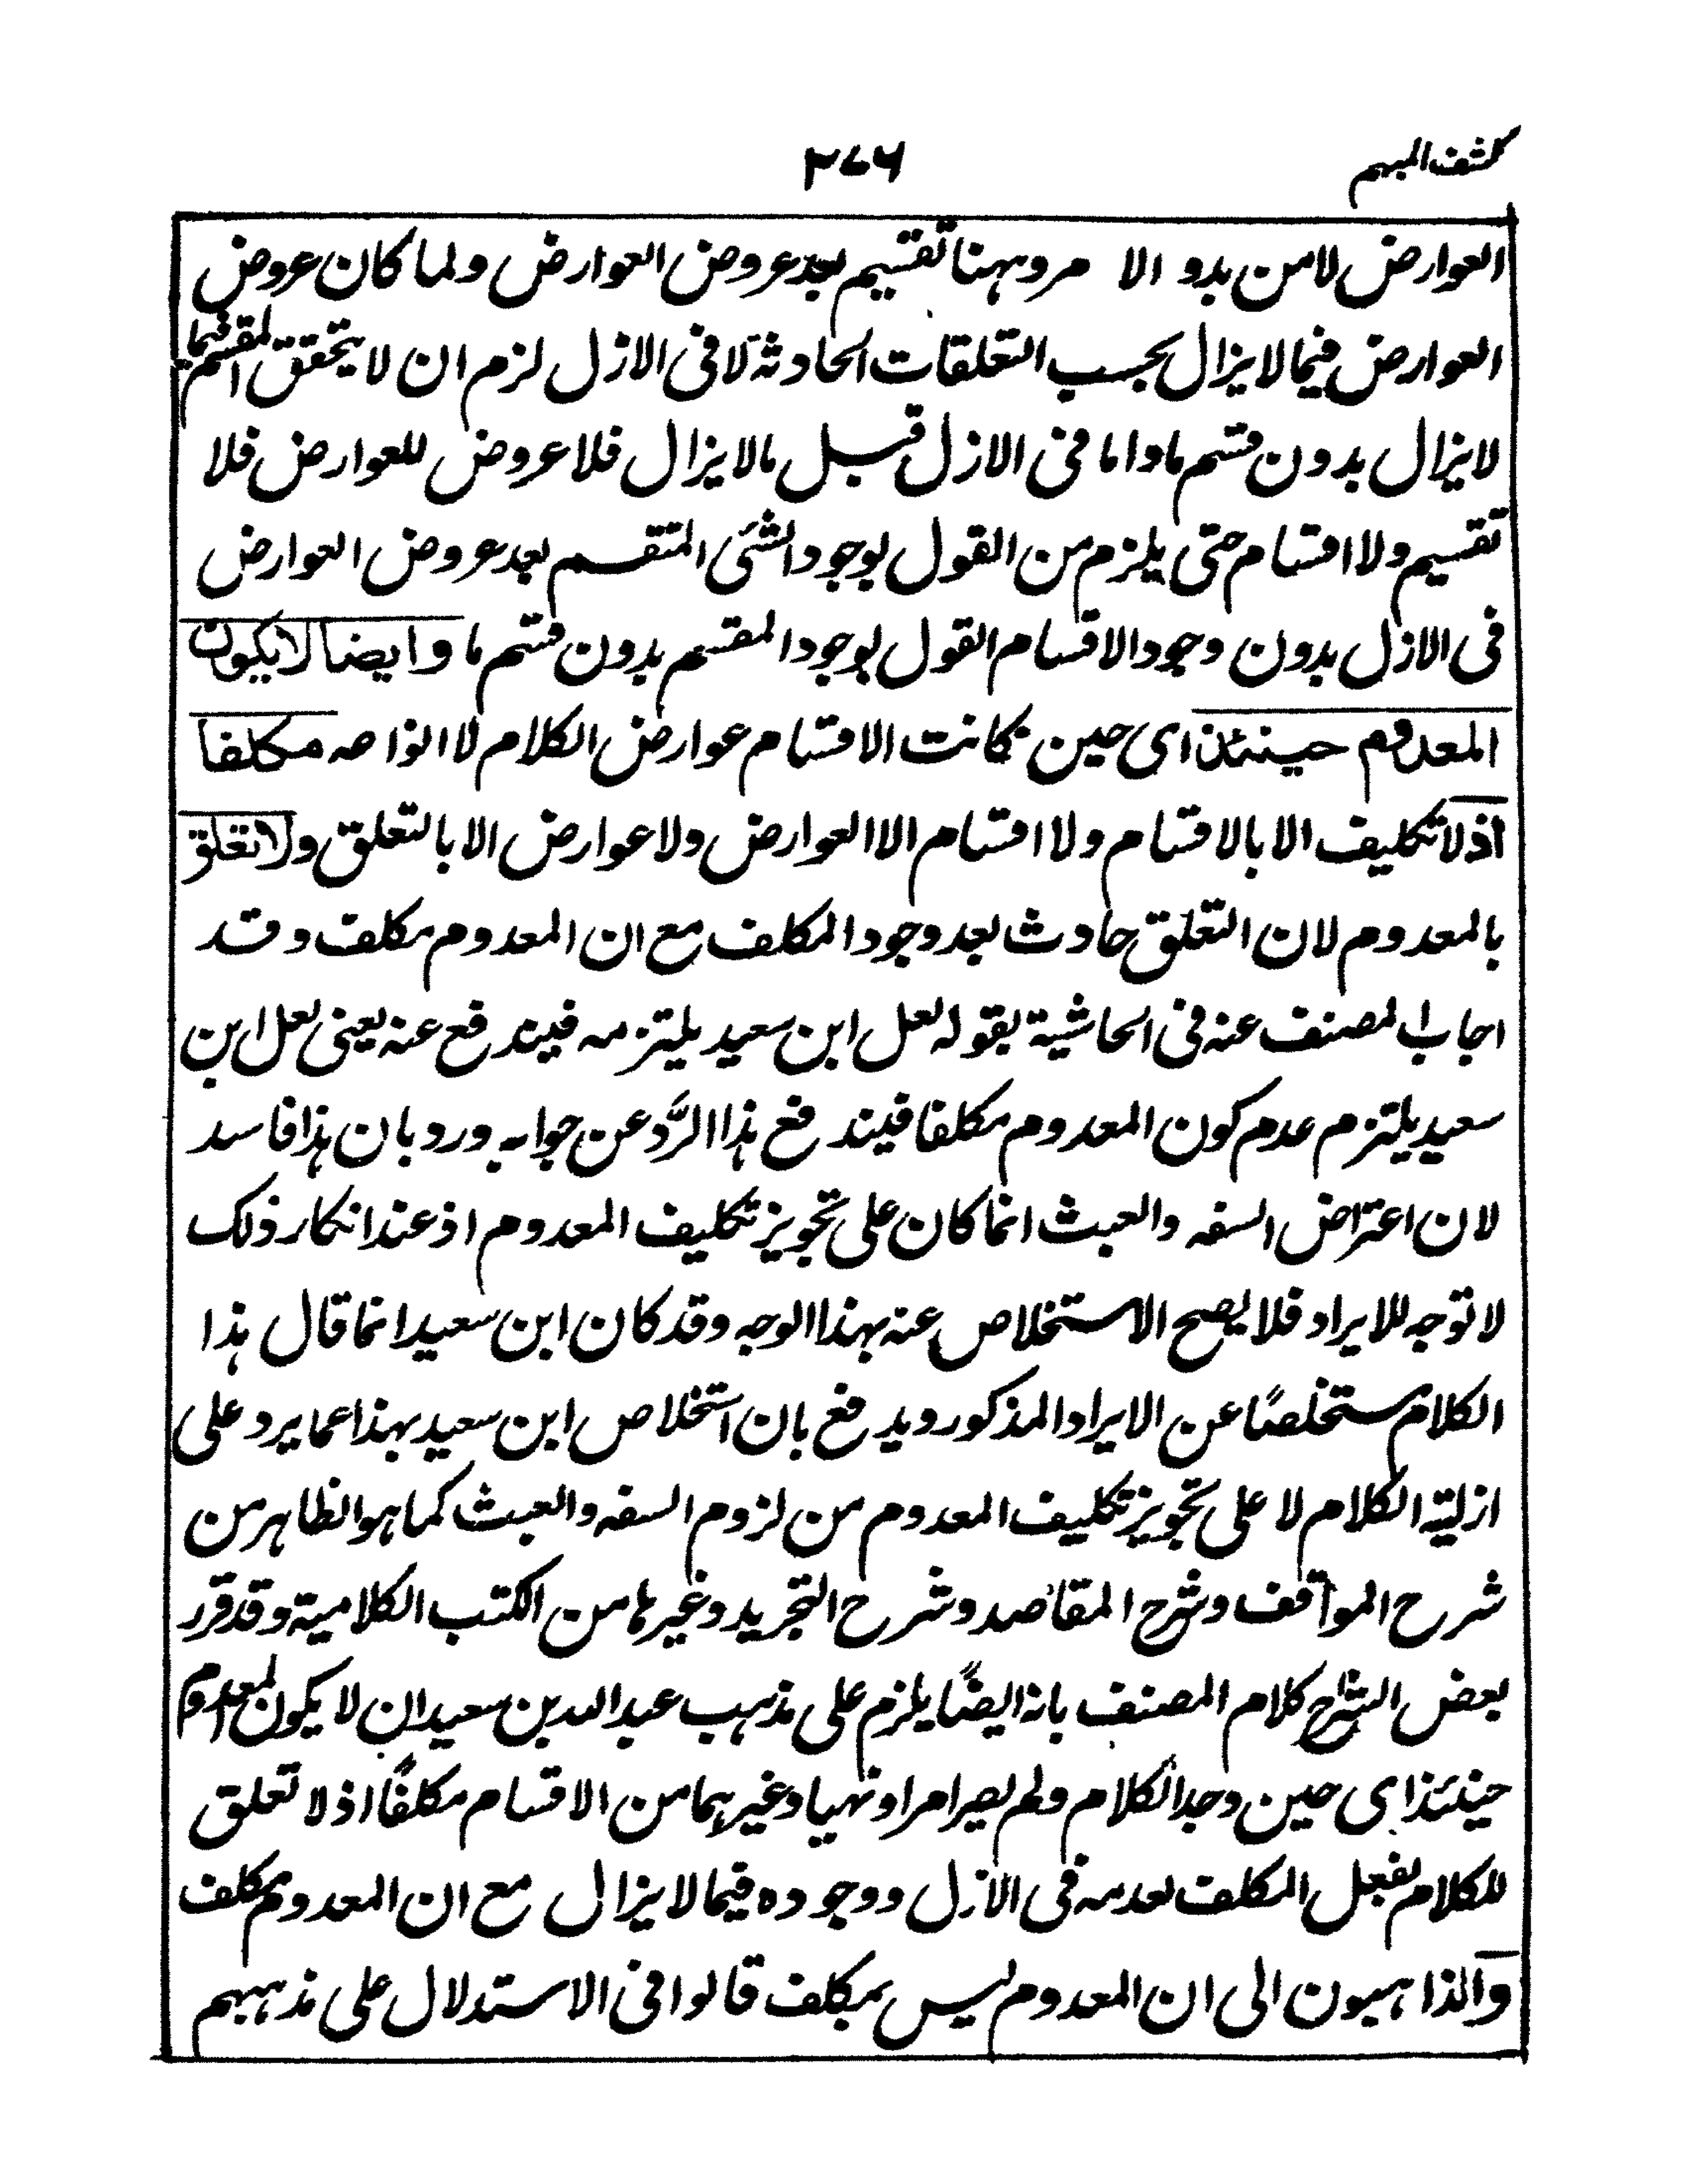 كشف المبهم
٢٧٦
العوارض لا من بدو الا مر وههنا تقسيم بعد عروض العوارض ولما كان عروض
العوارض فيما لا يزال بحسب التعلقات الحادثة لا فى الازل لزم ان لا يتحقق المقسم فيما
لا يزال بدون قسم ما واما فى الازل قبل مالا يزال فلا عروض للعوارض فلا
تقسيم ولا اقسام حتى يلزم من القول بوجود الشئ المتقسم بعد عروض العوارض
فى الازل بدون وجود الاقسام القول بوجود المقسم بدون قسم ما وايضا لا يكون
المعدوم حينئذ اى حين كانت الاقسام عوارض الكلام لا انواعه مكلفا
اذ لا تكليف الا بالاقسام ولا اقسام الا العوارض ولا عوارض الا بالتعلق ولا تعلق
بالمعدوم لان التعلق حادث بعد وجود المكلف مع ان المعدوم مكلف وقد
اجاب المصنف عنه فى الحاشية بقوله لعل ابن سعيد يلتزمه فيندفع عنه يعنى لعل ابن
سعيد يلتزم عدم كون المعدوم مكلفا فيندفع هذا الرَّد عن جوابه ورد بان هذا فاسد
لان اعتراض السفه والعبث انما كان على تجويز تكليف المعدوم اذ عند انكار ذلك
لا توجه للايراد فلا يصح الاستخلاص عنه بهذا الوجه وقد كان ابن سعيد انما قال هذا
الكلام مستخلصًا عن الايراد المذكور ويدفع بان استخلاص ابن سعيد بهذا عما يرد على
ازلية الكلام لا على تجويز تكليف المعدوم من لزوم السفه والعبث كما هو الظاهر من
شرح المواقف وشرح المقاصد وشرح التجريد وغيرها من الكتب الكلامية وقد قرر
بعض الشراح كلام المصنف بانه ايضًا يلزم على مذهب عبد الله بن سعيد ان لا يكون المعدوم
حينئذ اى حين وجد الكلام ولم يصر امرا ونهيا وغيرهما من الاقسام مكلفًا اذ لا تعلق
للكلام بفعل المكلف لعدمه فى الازل ووجوده فيما لا يزال مع ان المعدوم مكلف
والذاهبون الى ان المعدوم ليس بمكلف قالوا فى الاستدلال على مذهبهم